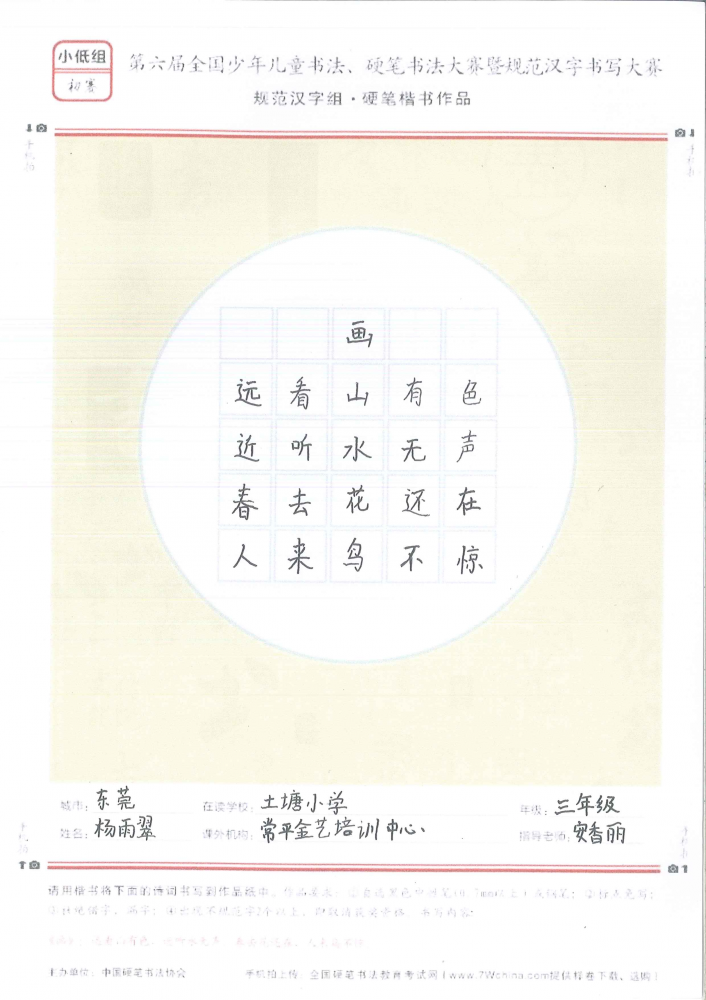 小低组
初赛
第六届全国少年儿童书法、硬笔书法大赛暨规范汉字书写大赛
规范汉字组·硬笔楷书作品
手机拍
手机拍
画
远看山有色
近听水无声
春去花还在
人来鸟不惊
城市：东莞 在读学校：土塘小学 年级：三年级
姓名：杨雨翠 课外机构：常平金艺培训中心 指导老师：安香丽
手机拍
手机拍
请用楷书将下面的诗词书写到作品纸中。作品要求：
主办单位：中国硬笔书法协会 手机拍上传：全国硬笔书法教育考试网（www.7Wchina.com提供样卷下载、选购）